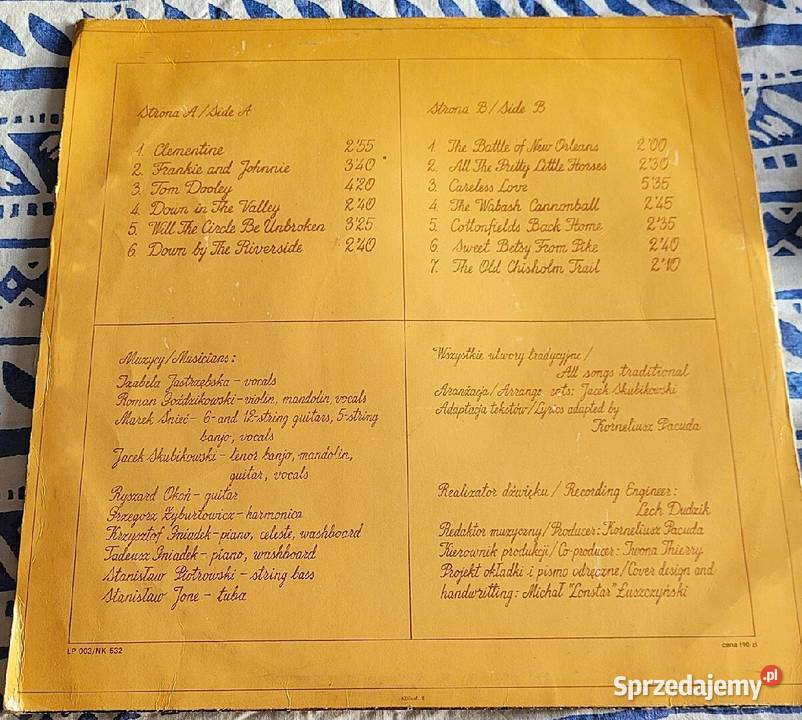 Strona A / Side A
1. Clementine 2'55
2. Frankie and Johnnie 3'40
3. Tom Dooley 4'20
4. Down in The Valley 2'40
5. Will The Circle Be Unbroken 3'25
6. Down by The Riverside 2'40
Strona B / Side B
1. The Battle of New Orleans 2'00
2. All The Pretty Little Horses 2'30
3. Careless Love 5'35
4. The Wabash Cannonball 2'45
5. Cottonfields Back Home 2'35
6. Sweet Betsy From Pike 2'40
7. The Old Chisholm Trail 2'10
Muzycy / Musicians:
Izabela Jastrzębska - vocals
Roman Goździkowski - violin, mandolin, vocals
Marek Śnieć - 6-and 12-string guitars, 5-string
banjo, vocals
Jacek Skubikowski - tenor banjo, mandolin,
guitar, vocals
Ryszard Okoń - guitar
Grzegorz Żyburtowicz - harmonica
Krzysztof Gniadek - piano, celeste, washboard
Tadeusz Gniadek - piano, washboard
Stanisław Piotrowski - string bass
Stanisław Jone - tuba
Wszystkie utwory tradycyjne /
All songs traditional
Aranżacja / Arrange ets: Jacek Skubikowski
Adaptacja tekstów / Lyrics adapted by
Korneliusz Pacuda
Realizator dźwięku / Recording Engineer:
Lech Dudzik
Redaktor muzyczny / Producer: Korneliusz Pacuda
Kierownik produkcji / Co-producer: Iwona Thierry
Projekt okładki i pismo odręczne / Cover design and
handwritting: Michał "Lonstar" Łuszczyński
LP 003/NK 532
cena 190 zł
Sprzedajemy.pl